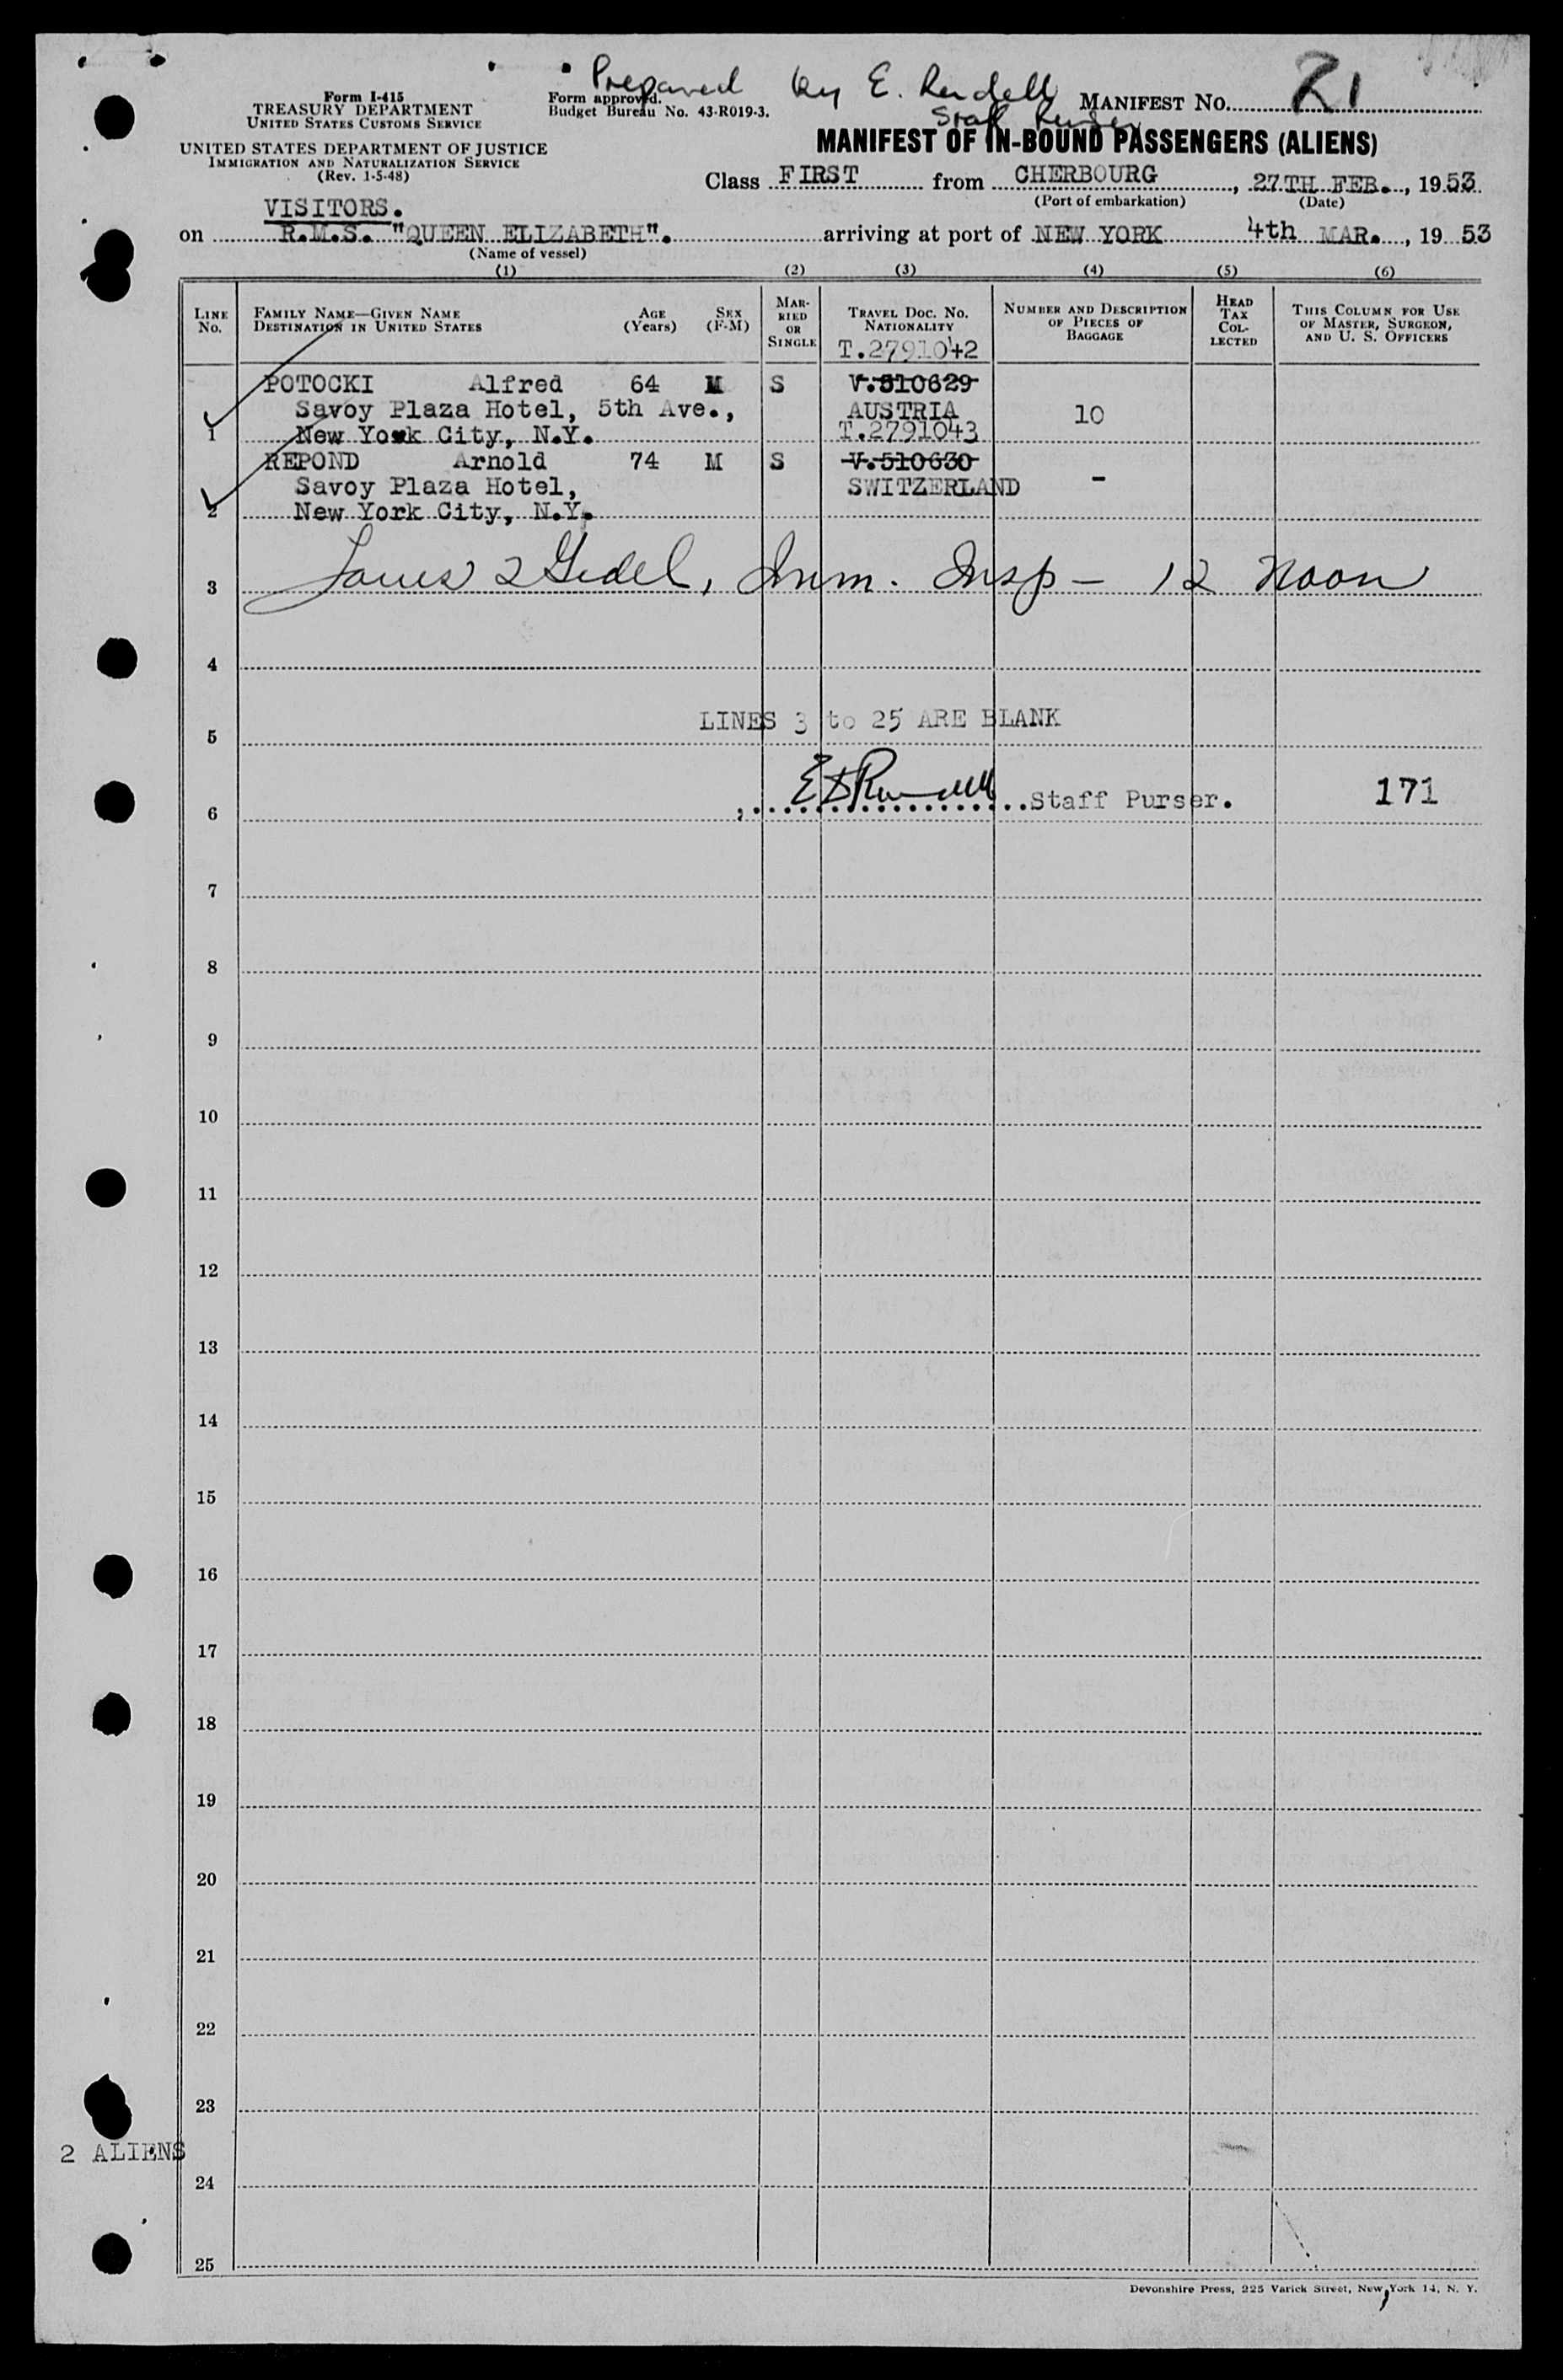 Prepared by E. Rendell
Staff Purser
Form I-415
TREASURY DEPARTMENT
UNITED STATES CUSTOMS SERVICE
Form approved.
Budget Bureau No. 43-R019-3.
MANIFEST NO. 21
UNITED STATES DEPARTMENT OF JUSTICE
IMMIGRATION AND NATURALIZATION SERVICE
(Rev. 1-5-48)
MANIFEST OF IN-BOUND PASSENGERS (ALIENS)
Class FIRST from CHERBOURG, 27TH FEB., 1953
(Port of embarkation) (Date)
VISITORS.
on R.M.S. "QUEEN ELIZABETH". arriving at port of NEW YORK 4th MAR., 1953
(Name of vessel)
(1) (2) (3) (4) (5) (6)
LINE NO.
FAMILY NAME—GIVEN NAME
DESTINATION IN UNITED STATES
AGE (Years)
SEX (F-M)
MAR-RIED OR SINGLE
TRAVEL DOC. NO. NATIONALITY
NUMBER AND DESCRIPTION OF PIECES OF BAGGAGE
HEAD TAX COL-LECTED
THIS COLUMN FOR USE OF MASTER, SURGEON, AND U. S. OFFICERS
T.2791042
POTOCKI Alfred 64 M S V.510629
Savoy Plaza Hotel, 5th Ave., AUSTRIA 10
1 New York City, N.Y. T.2791043
REPOND Arnold 74 M S V.510630
Savoy Plaza Hotel, SWITZERLAND -
2 New York City, N.Y.
3 Imm. Insp - 12 Noon
4
LINES 3 to 25 ARE BLANK
5
Staff Purser. 171
6
7
8
9
10
11
12
13
14
15
16
17
18
19
20
21
22
23
2 ALIENS
24
25
Devonshire Press, 225 Varick Street, New York 14, N. Y.